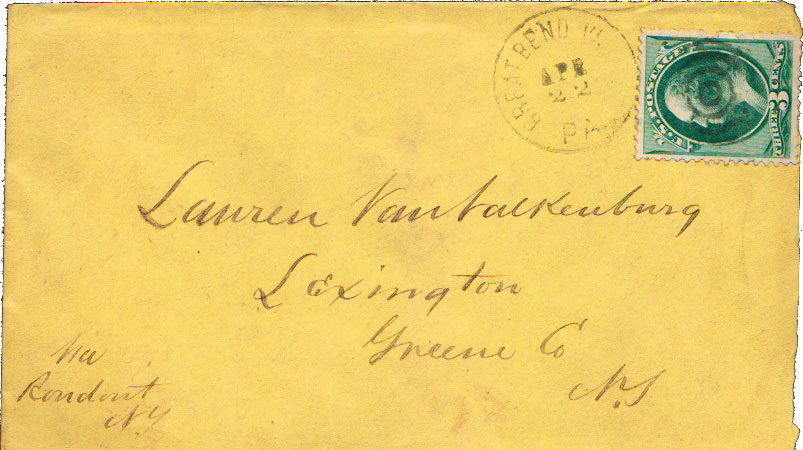 GREAT BEND VI.
APR
22
PA
U.S. POSTAGE
3
Lauren VanValkenburg
Lexington
Greene Co
N.Y
Via
Rondout
NY